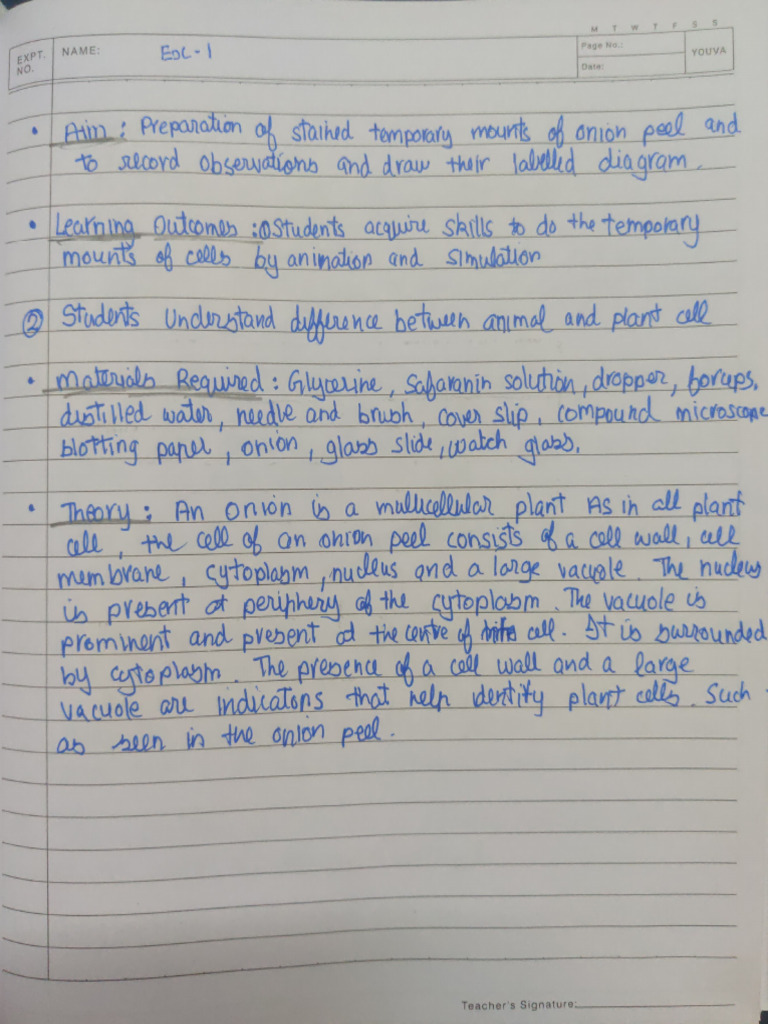 M T W T F S S
EXPT. NO.
NAME: Exc - 1
Page No.:
Date:
YOUVA
• Aim : Preparation of stained temporary mounts of onion peel and
to record observations and draw their labelled diagram.
• Learning Outcomes : ① Students acquire skills to do the temporary
mounts of cells by animation and simulation
② Students Understand difference between animal and plant cell
• Materials Required : Glycerine, Safaranin solution, dropper, forceps,
distilled water, needle and brush, cover slip, compound microscope
blotting paper, onion, glass slide, watch glass.
• Theory : An onion is a multicellular plant As in all plant
cell, the cell of an onion peel consists of a cell wall, cell
membrane, cytoplasm, nucleus and a large vacuole. The nucleus
is present at periphery of the cytoplasm. The vacuole is
prominent and present at the centre of cell. It is surrounded
by cytoplasm. The presence of a cell wall and a large
vacuole are indicators that help identify plant cells. Such
as seen in the onion peel.
Teacher's Signature: